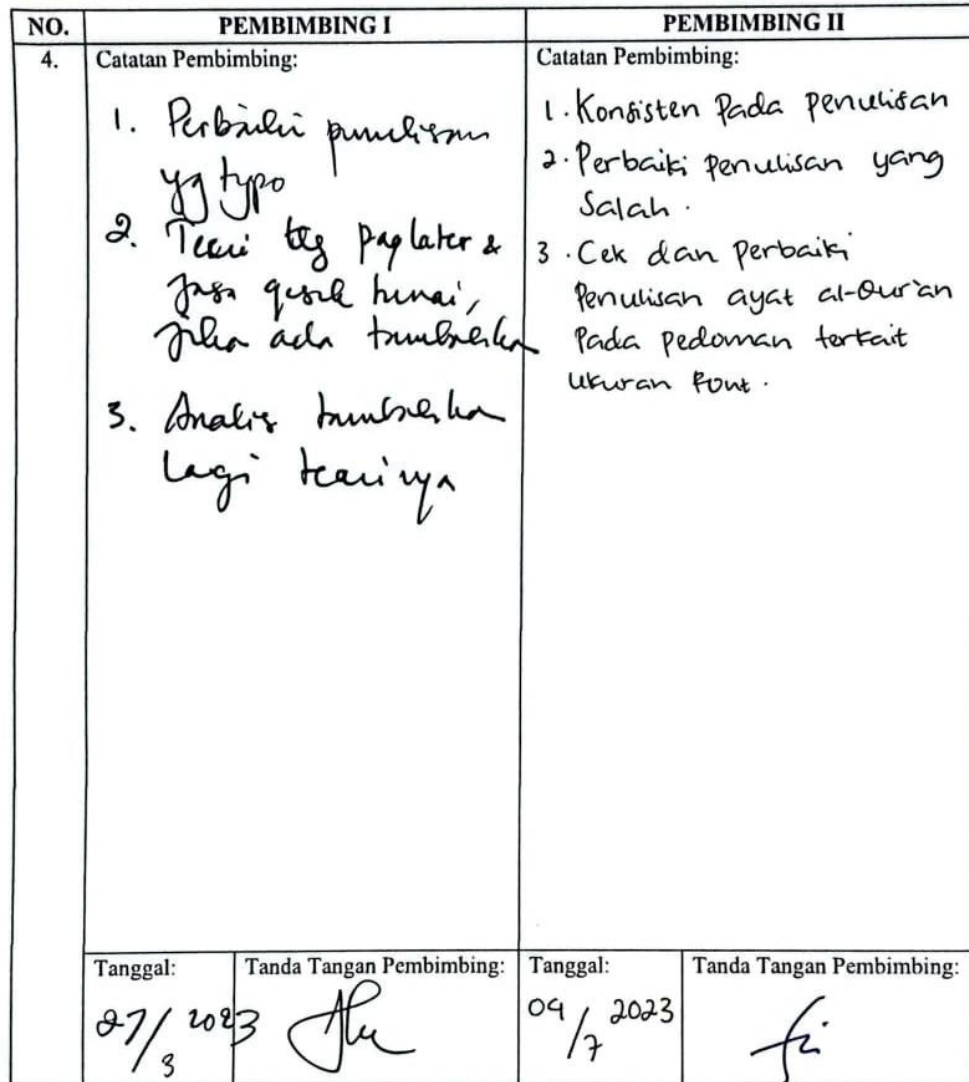 NO.
PEMBIMBING I
PEMBIMBING II
4.
Catatan Pembimbing:
1. Perbaiki penulisan
yg typo
2. Teori ttg paylater &
jasa gesek tunai,
jika ada tambahkan
3. Analis tambahkan
lagi teorinya
Catatan Pembimbing:
1. Konsisten Pada penulisan
2. Perbaiki Penulisan yang
Salah.
3. Cek dan Perbaiki
Penulisan ayat al-Qur'an
Pada pedoman terkait
ukuran Font.
Tanggal:
27/3 2023
Tanda Tangan Pembimbing:
Tanggal:
04/7 2023
Tanda Tangan Pembimbing: